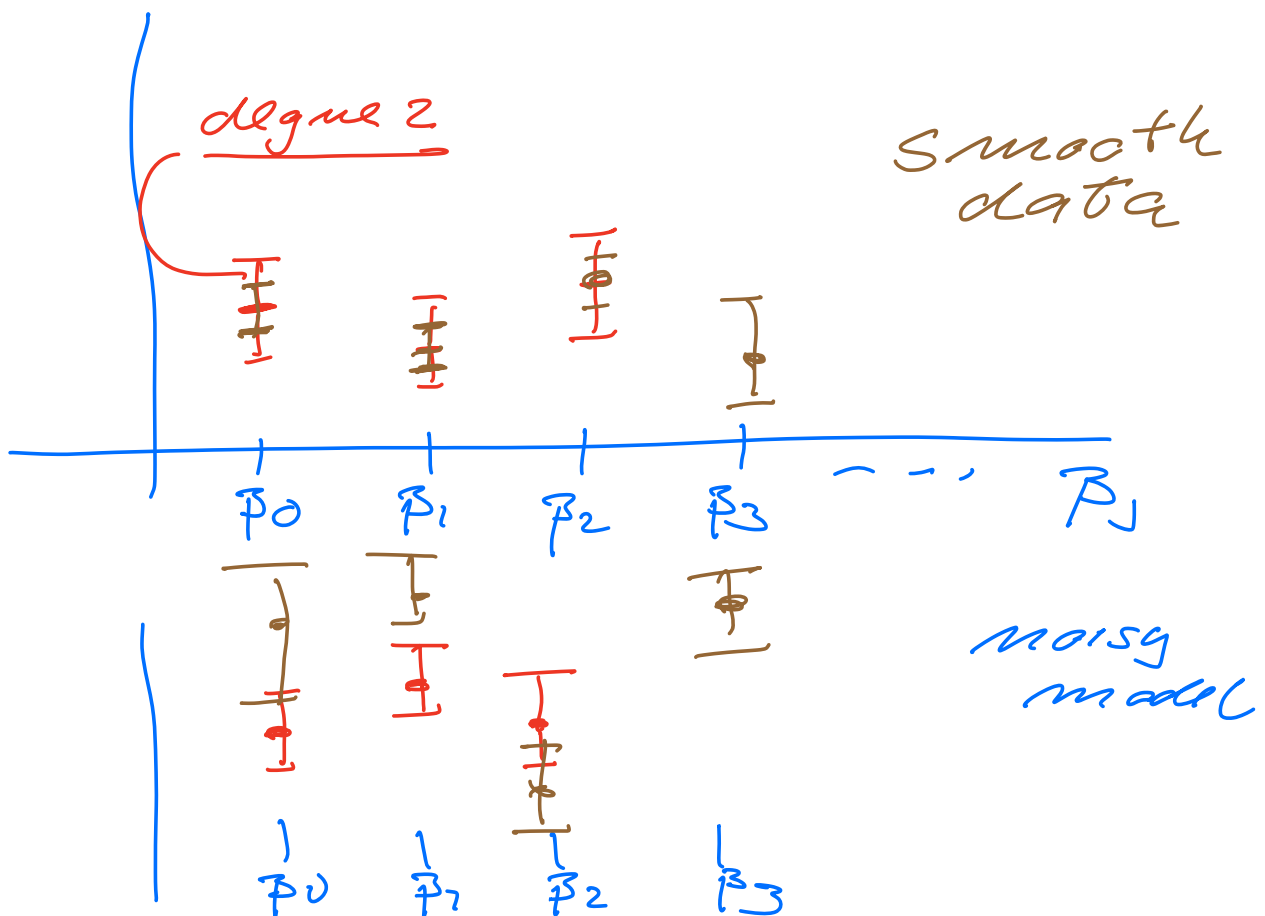 degree 2
smooth
data
β0 β1 β2 β3 ---, βJ
noisy
model
β0 β1 β2 β3